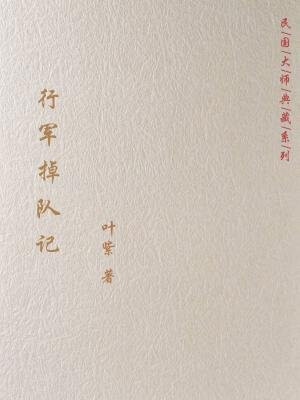 民国大师典藏系列
行军掉队记
叶紫 著